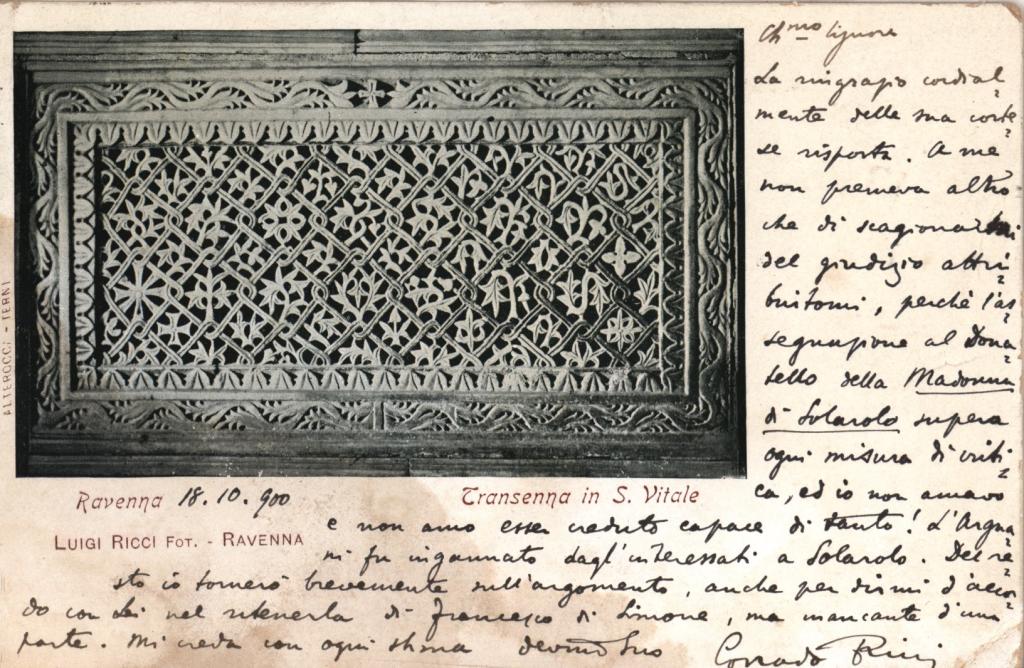 Ch.mo Signore
La ringrazio cordial-
mente della sua corte-
se risposta. A me
non premeva altro
che di scagionarmi
del giudizio attri-
buitomi, perchè l'as-
segnazione al Dona-
tello della Madonna
di Solarolo supera
ogni misura di criti-
ca, ed io non amavo
e non amo esser creduto capace di tanto! L'Argna-
ni fu ingannato dagl'interessati a Solarolo. Del re-
sto io tornerò brevemente sull'argomento, anche per dirmi d'accor-
do con Lei nel ritenerla di Francesco di Simone, ma mancante d'una
parte. Mi creda con ogni stima devmo Suo
Corrado Ricci
Ravenna 18.10.900
Transenna in S. Vitale
LUIGI RICCI FOT. - RAVENNA
ALTEROCCI - TERNI